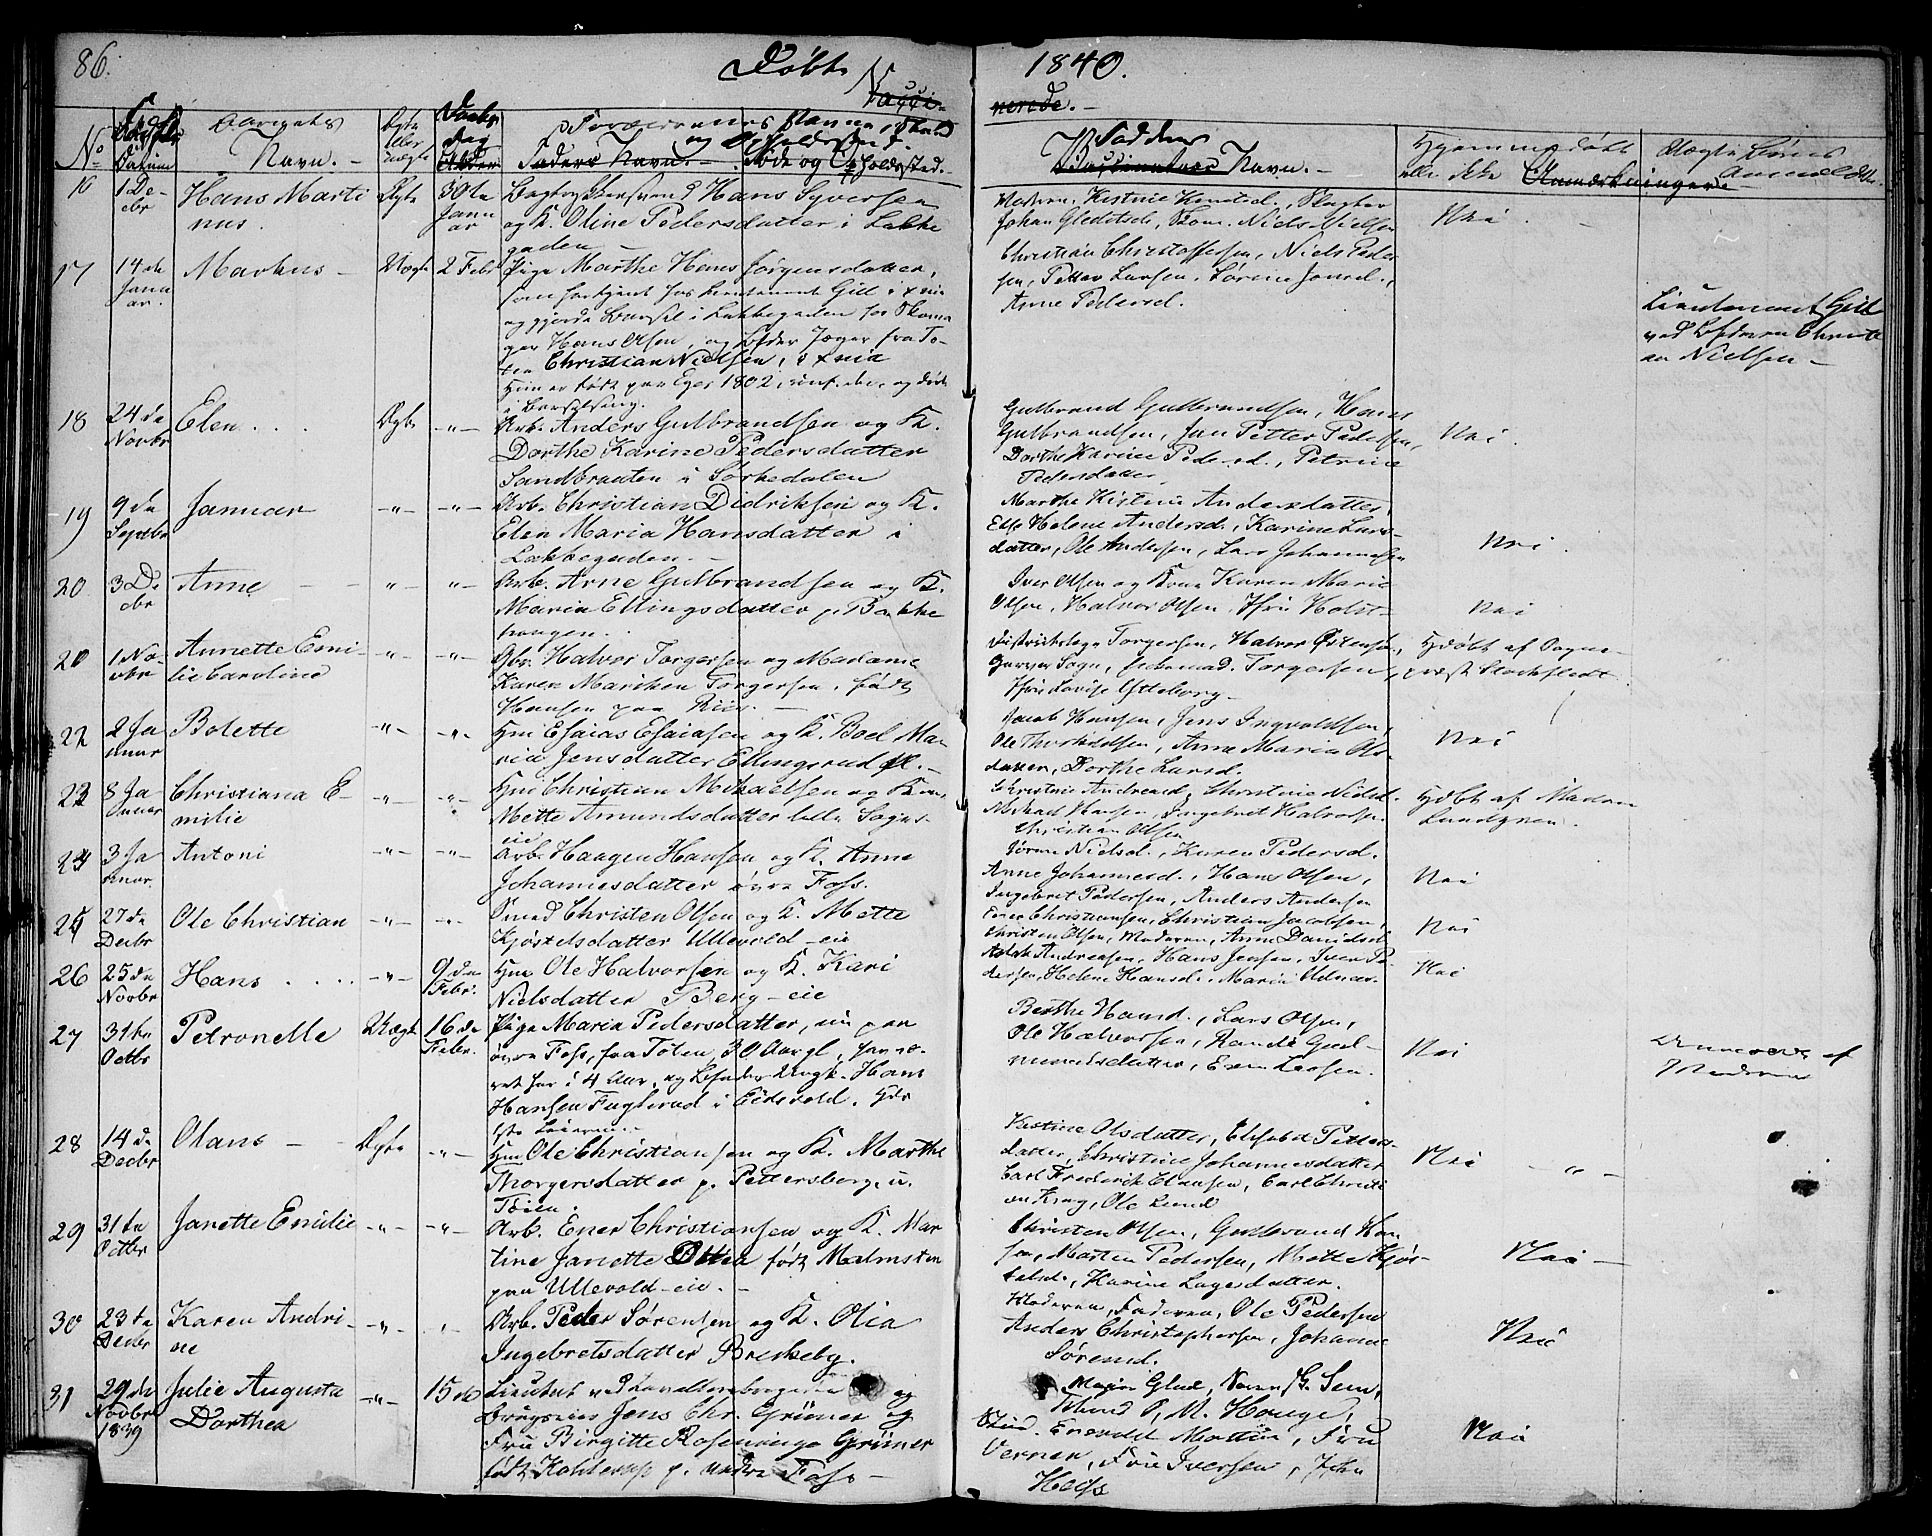 86.
Døbte
1840.
Vacci-
nerede.-
No
Datum
Barnets
Navn.-
Ægte
eller
uægte
Daabs
dag
Alder
Forældrenes Navne, Stand
og Opholdssted.
Faders Navn.- Føde og Opholdssted.
Fadderes
Vaccinateurs Navn.-
Hjemmedøbt
eller ikke
Anmærkninger.-
Uægte Børns
16
1 De-
cbr
Hans Marti
nus.
Ægte
30te
Janu
ar
Hans Syversen
og K. Oline Pedersdatter i Lakke
gaden -
Moderen, Kistine
Johan Gleditsch, Niels Nielsen
Nei
17
14de
Janu
ar.
Markus -
Uægte
2 Febr
Pige Marthe Hans Jørgensdatter,
som har tjent hos Lieutenant Gill i
og gjorde Barsel i Lakkegaden hos Skoma
ger Hans Olsen, og Jæger fra To-
ten Christian Nielsen, i
Hun er født paa Eger 1802,
i Barselseng.
Christian Christoffersen, Niels Peder
sen, Petter Larsen, Sørine Jonsd.,
Anne Pedersd.
Lieutenant Gill
ved Christi
an Nielsen -
18
24de
Novbr
Elen . . .
Ægte
-"-
Arb. Anders Gulbrandsen og K.
Dorthe Karine Pedersdatter
Sandbraaten i Sørkedalen
Gulbrand Gulbrandsen, Hans
Gulbrandsen, Jan Petter Pedersen,
Dorthe Karine Pedersd., Petrine
Pedersdatter
Nei.
19
9de
Septbr
Januar
-"-
-"-
Arb. Christian Didriksen og K.
Elen Maria Hansdatter i
Lakkegaden. -
Marthe Kistine Andersdatter,
Else Helene Andersd., Karine Lars-
datter, Ole Andersen, Lars Johannesen
Nei.
20
3 De
cbr
Anne - -
-"-
-"-
Arb. Arne Gulbrandsen og K.
Maria Ellingsdatter p. Bakke
haugen.
Iver Olsen og Kone Karen Marie
Olsen, Halvor Olsen, Jfru Holst
Nei
20
1 No-
vbr
Annette Emi-
lie Caroline
-"-
-"-
Gbr. Halvor Torgersen og Madame
Karen Marthea Torgersen, født
Hansen paa Riis. -
Torgersen, Halvor Østensen,
Torgersen,
Jfru Lovise
Hjdøbt af Sogne-
præst Stockfledt
22
2 Ja
nuar
Bolette
-"-
-"-
Hm Esaias Esaiasen og K. Boel Ma-
ria Jensdatter Ellingsrud
Jacob Hansen, Jens Ingvoldsen,
Ole Thorkildsen, Anne Maria Ols
datter, Dorthe Larsd.
Nei
23
8 Ja
nuar
Christiana E-
milie
-"-
-"-
Hm Christian Mikaelsen og Kone
Mette Amundsdatter lille Sogns-
eie
Christine Andreasd., Christine Nielsd.
Mikael Hansen, Ingebret Halvorsen
Christian Olsen
Hjdøbt af Madam
Lundgren.
24
3 Ja
nuar.
Antoni
-"-
-"-
Arb. Haagen Hansen og K. Anne
Johannesdatter øvre Foss.
Sørine Nielsd., Karen Pedersd.
Anne Johannesd., Hans Olsen,
Ingebret Pedersen, Anders Andersen
Nei
25
27de
Decbr
Ole Christian
-"-
-"-
Smed Christen Olsen og K. Mette
Kjøstelsdatter Ullevold-eie
Ener Christiansen, Christian Jacobsen,
Christen Olsen, Moderen, Anne Danielsd
Nei
26
25de
Novbr
Hans . . . .
-"-
9de
Febr.
Hm Ole Halvorsen og K. Kari
Nielsdatter Berg-eie
Andreasen, Hans Jensen, Iver Pe
dersen, Helene Hansd., Maria
Nei
27
31te
Octbr
Petronelle
Uægte
16de
Febr.
Pige Maria Pedersdatter, nu paa
øvre Foss, fra Toten, 30 Aar gl, har væ-
ret her i 4 Aar, og Ungk. Hans
Hansen Fuglerud i Eidsvold.
Berthe Hansd., Lars Olsen,
Ole Halvorsen, Randi Gud-
mundsdatter, Even Larsen.
Nei
af
Moderen
28
14de
Decbr
Olans - -
Ægte
-"-
Hm Ole Christiansen og K. Marthe
Thorgersdatter p. Pettersborg, u.
Tøien.
Kistine Olsdatter, Elisabet Petters-
datter, Christine Johannesdatter
Carl Frederik Clausen, Carl Christi
an Krag, Ole Lund
Nei - " -
29
31te
Octbr
Janette Emilie
-"-
-"-
Arb. Ener Christiansen og K. Mar
tine Janette Ottea født Malmsten
paa Ullevold-eie. -
Christen Olsen, Gulbrand Han
sen, Morten Pedersen, Mette Kjøs-
telsd., Karine Lagesdatter.
Nei -
30
23te
Decbr
Karen Andri-
ne
-"-
"
Arb. Peder Sørensen og K. Olia
Ingebretsdatter Briskeby.
Moderen, Faderen, Ole Pedersen
Anders Christophersen, Johanne
Sørensd.
Nei
31
29de
Novbr
1839
Julie Augusta
Dorthea
-"-
15de
Lieutnt v. og
Jens Chr. Grüner og
Fru Birgitte Rosenvinge Grüner
født p. nedre Foss -
Major Glad,
P. M. Hauge,
Stud. Enevold Fru
Verner, Fru Iversen,
Nei